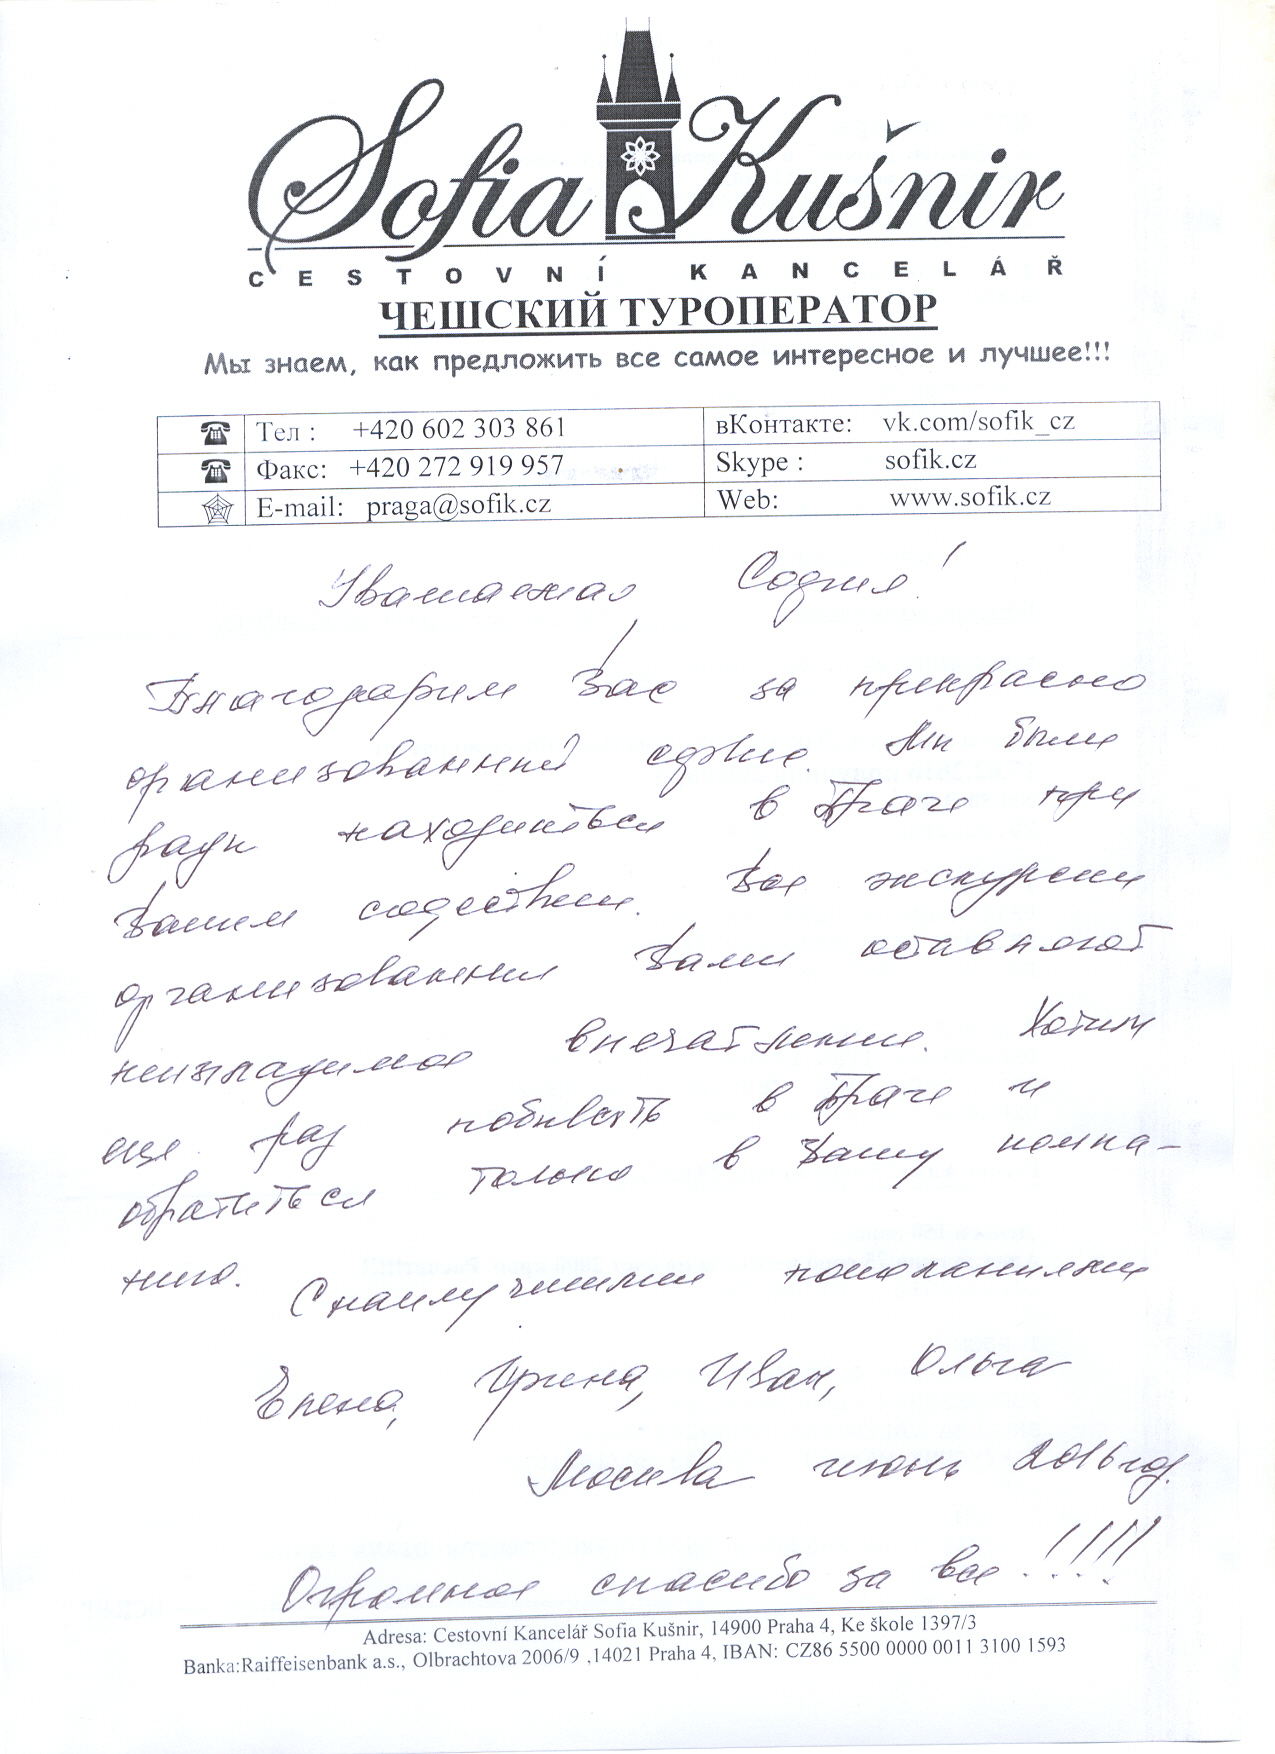 Sofia Kušnir
CESTOVNÍ KANCELÁŘ
ЧЕШСКИЙ ТУРОПЕРАТОР
Мы знаем, как предложить все самое интересное и лучшее!!!
Тел : +420 602 303 861 вКонтакте: vk.com/sofik_cz
Факс: +420 272 919 957 Skype : sofik.cz
E-mail: praga@sofik.cz Web: www.sofik.cz
Уважаемая София!
Благодарим Вас за прекрасно
организованный отдых. Мы были
рады находиться в Праге при
Вашем содействии. Все экскурсии
организованные Вами оставляют
неизгладимое впечатление. Хотим
еще раз побывать в Праге и
обратиться только в Вашу компа-
нию.
С наилучшими пожеланиями
Елена, Ирина, Иван, Ольга
Москва июнь 2016 год.
Огромное спасибо за все!!!!!
Adresa: Cestovní Kancelář Sofia Kušnir, 14900 Praha 4, Ke škole 1397/3
Banka:Raiffeisenbank a.s., Olbrachtova 2006/9 ,14021 Praha 4, IBAN: CZ86 5500 0000 0011 3100 1593